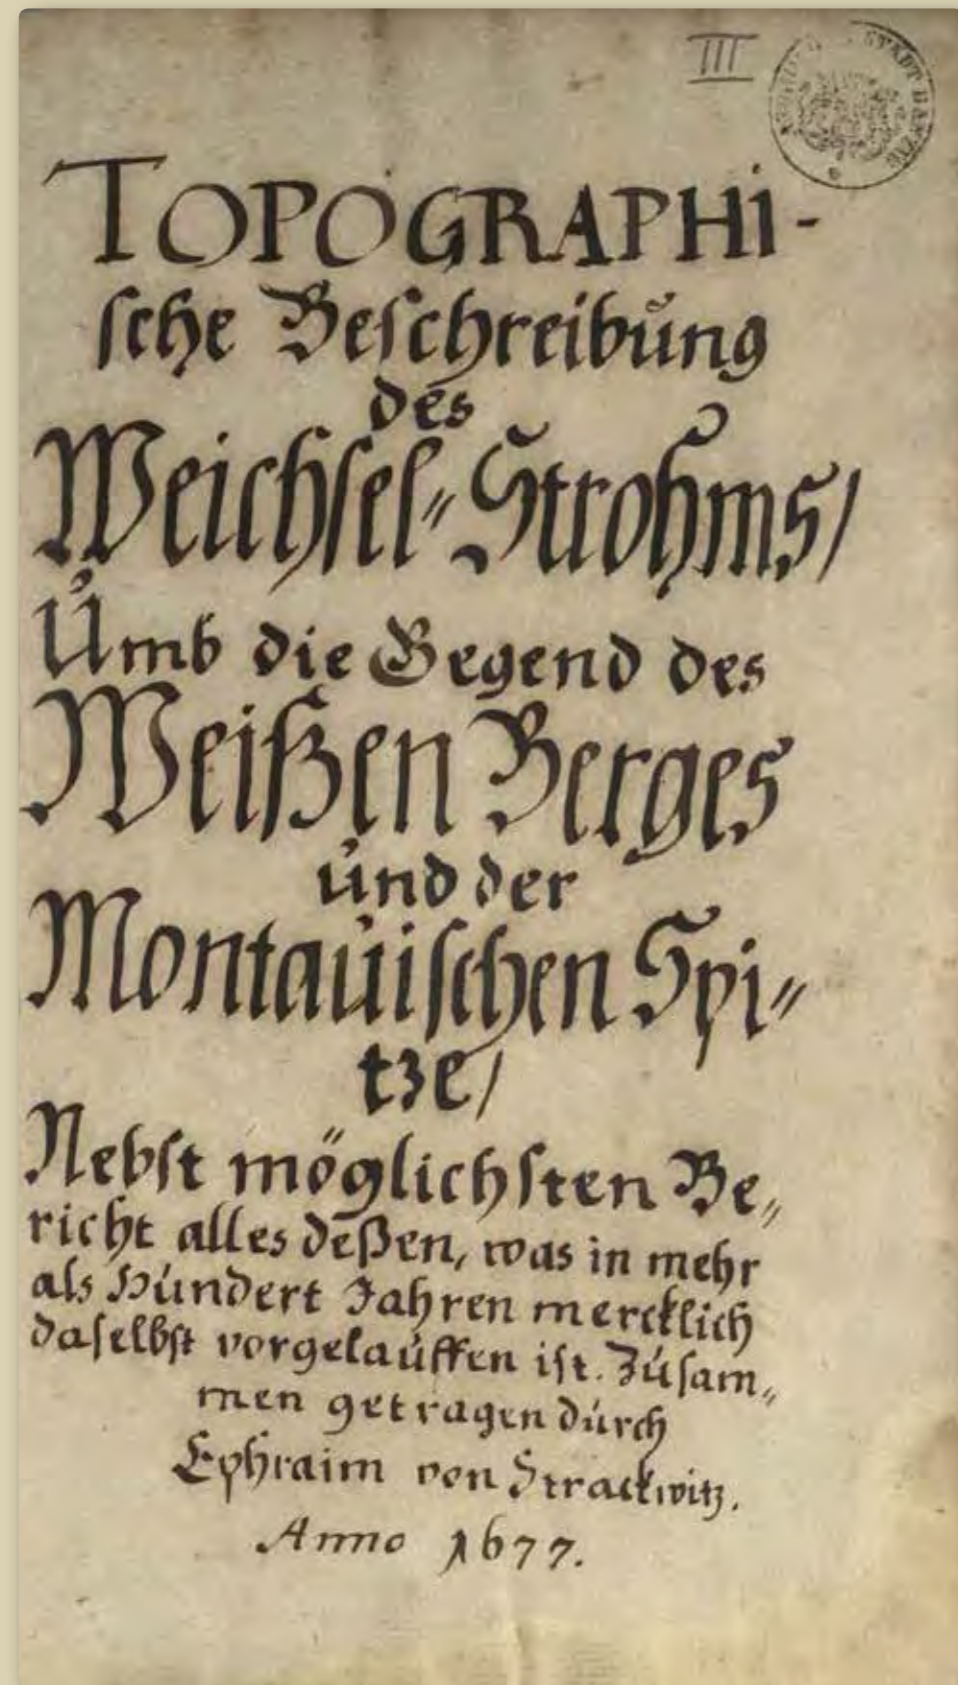 III
STADT DANZIG
TOPOGRAPHI-
sche Beschreibung
des
Weichsel-Strohms/
Umb die Gegend des
Weißen Berges
und der
Montauischen Spi-
tze/
Nebst möglichsten Be-
richt alles deßen, was in mehr
als Hundert Jahren mercklich
daselbst vorgelauffen ist. Zusam-
men getragen durch
Ephraim von Strackwitz.
Anno 1677.